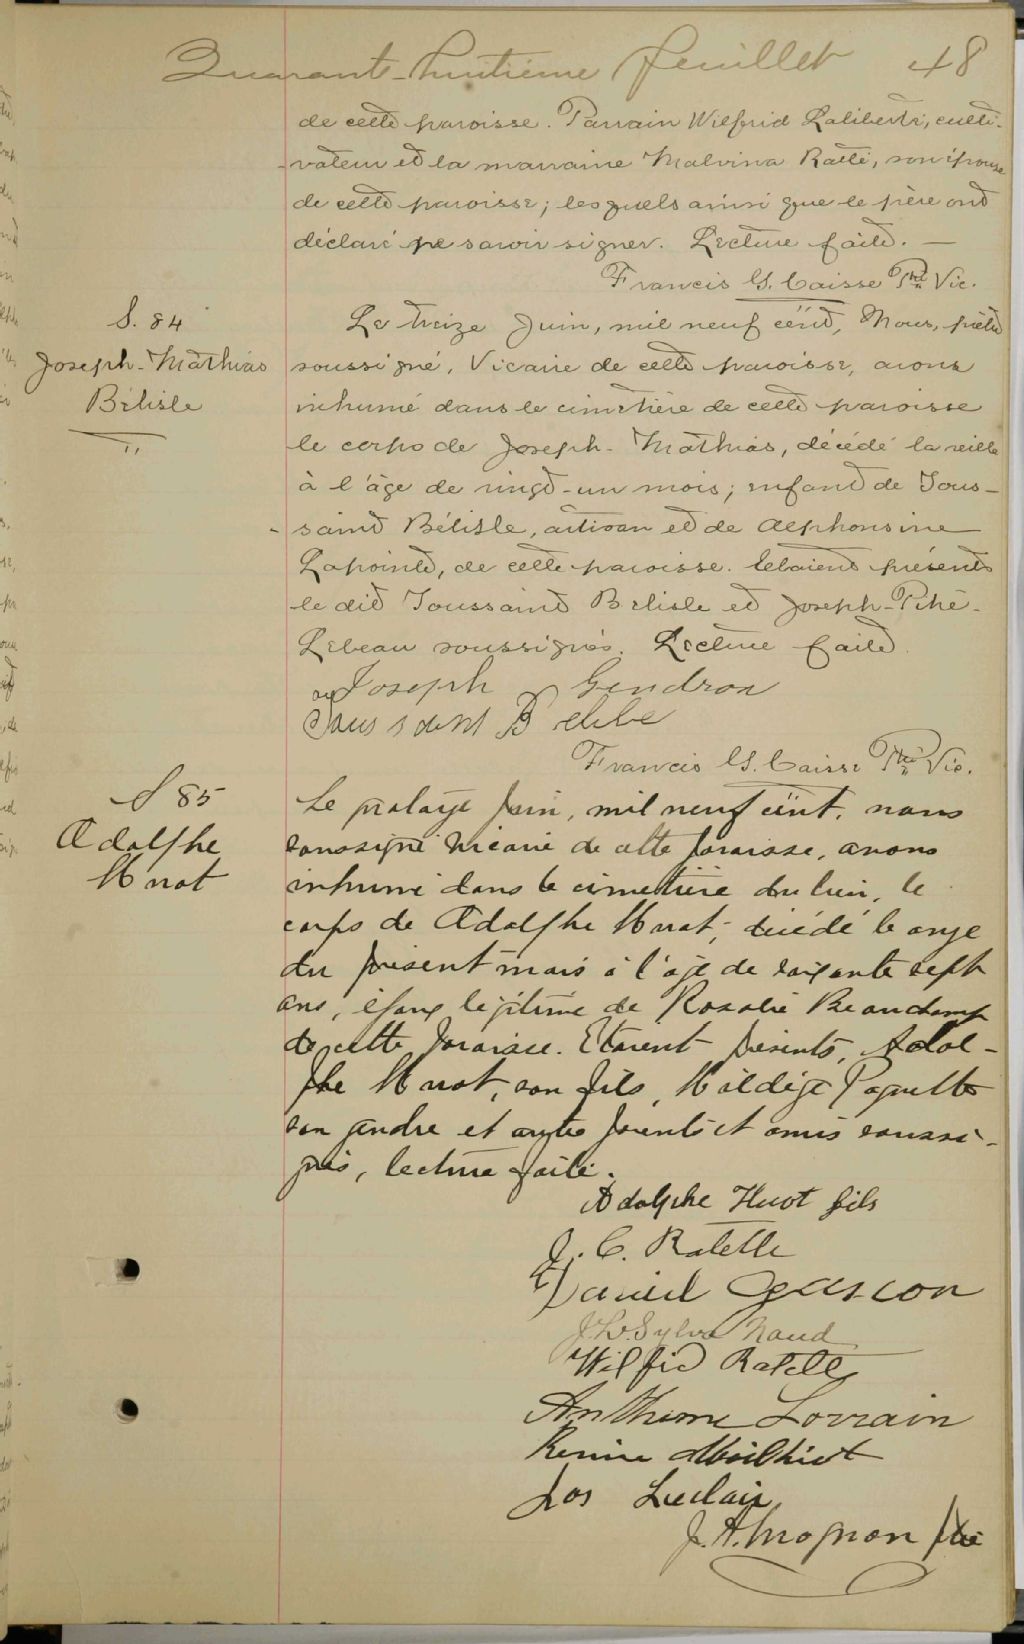 Quarante-huitième feuillet 48
de cette paroisse. Parrain Wilfrid Laliberté, culti-
vateur et la marraine Malvina Ratté, son épouse
de cette paroisse; lesquels ainsi que le père ont
déclaré ne savoir signer. Lecture faite. —
Francis G. Caisse Ptre Vic.
S. 84
Joseph-Mathias
Bélisle
Le treize Juin, mil neuf cent, Nous, prêtre
soussigné, Vicaire de cette paroisse, avons
inhumé dans le cimetière de cette paroisse
le corps de Joseph-Mathias, décédé la veille
à l'âge de vingt-un mois; enfant de Tous-
saint Bélisle, artisan et de Alphonsine
Lapointe, de cette paroisse. Etaient présents
le dit Toussaint Belisle et Joseph-Piché-
Lebeau soussignés. Lecture faite.
Joseph Gendron
Francis G. Caisse Ptre Vic.
S 85
Adolphe
Huot
Le quatorze Juin, mil neuf cent, nous
soussigné vicaire de cette paroisse, avons
inhumé dans le cimetière du lieu, le
corps de Adolphe Huot, décédé le onze
du présent mois à l'âge de soixante sept
ans, époux légitime de Rosalie Beauchamp
de cette paroisse. Etaient présents, Adol-
phe Huot, son fils, Hildège Paquette
son gendre et autres parents et amis soussi-
gnés, lecture faite.
Adolphe Huot fils
J. C. Ratelle
Daniel Gascon
Sylva Naud
Wilfrid Ratelle
Anthime Lorrain
Jos Leclair
J. A. Mognon Ptre